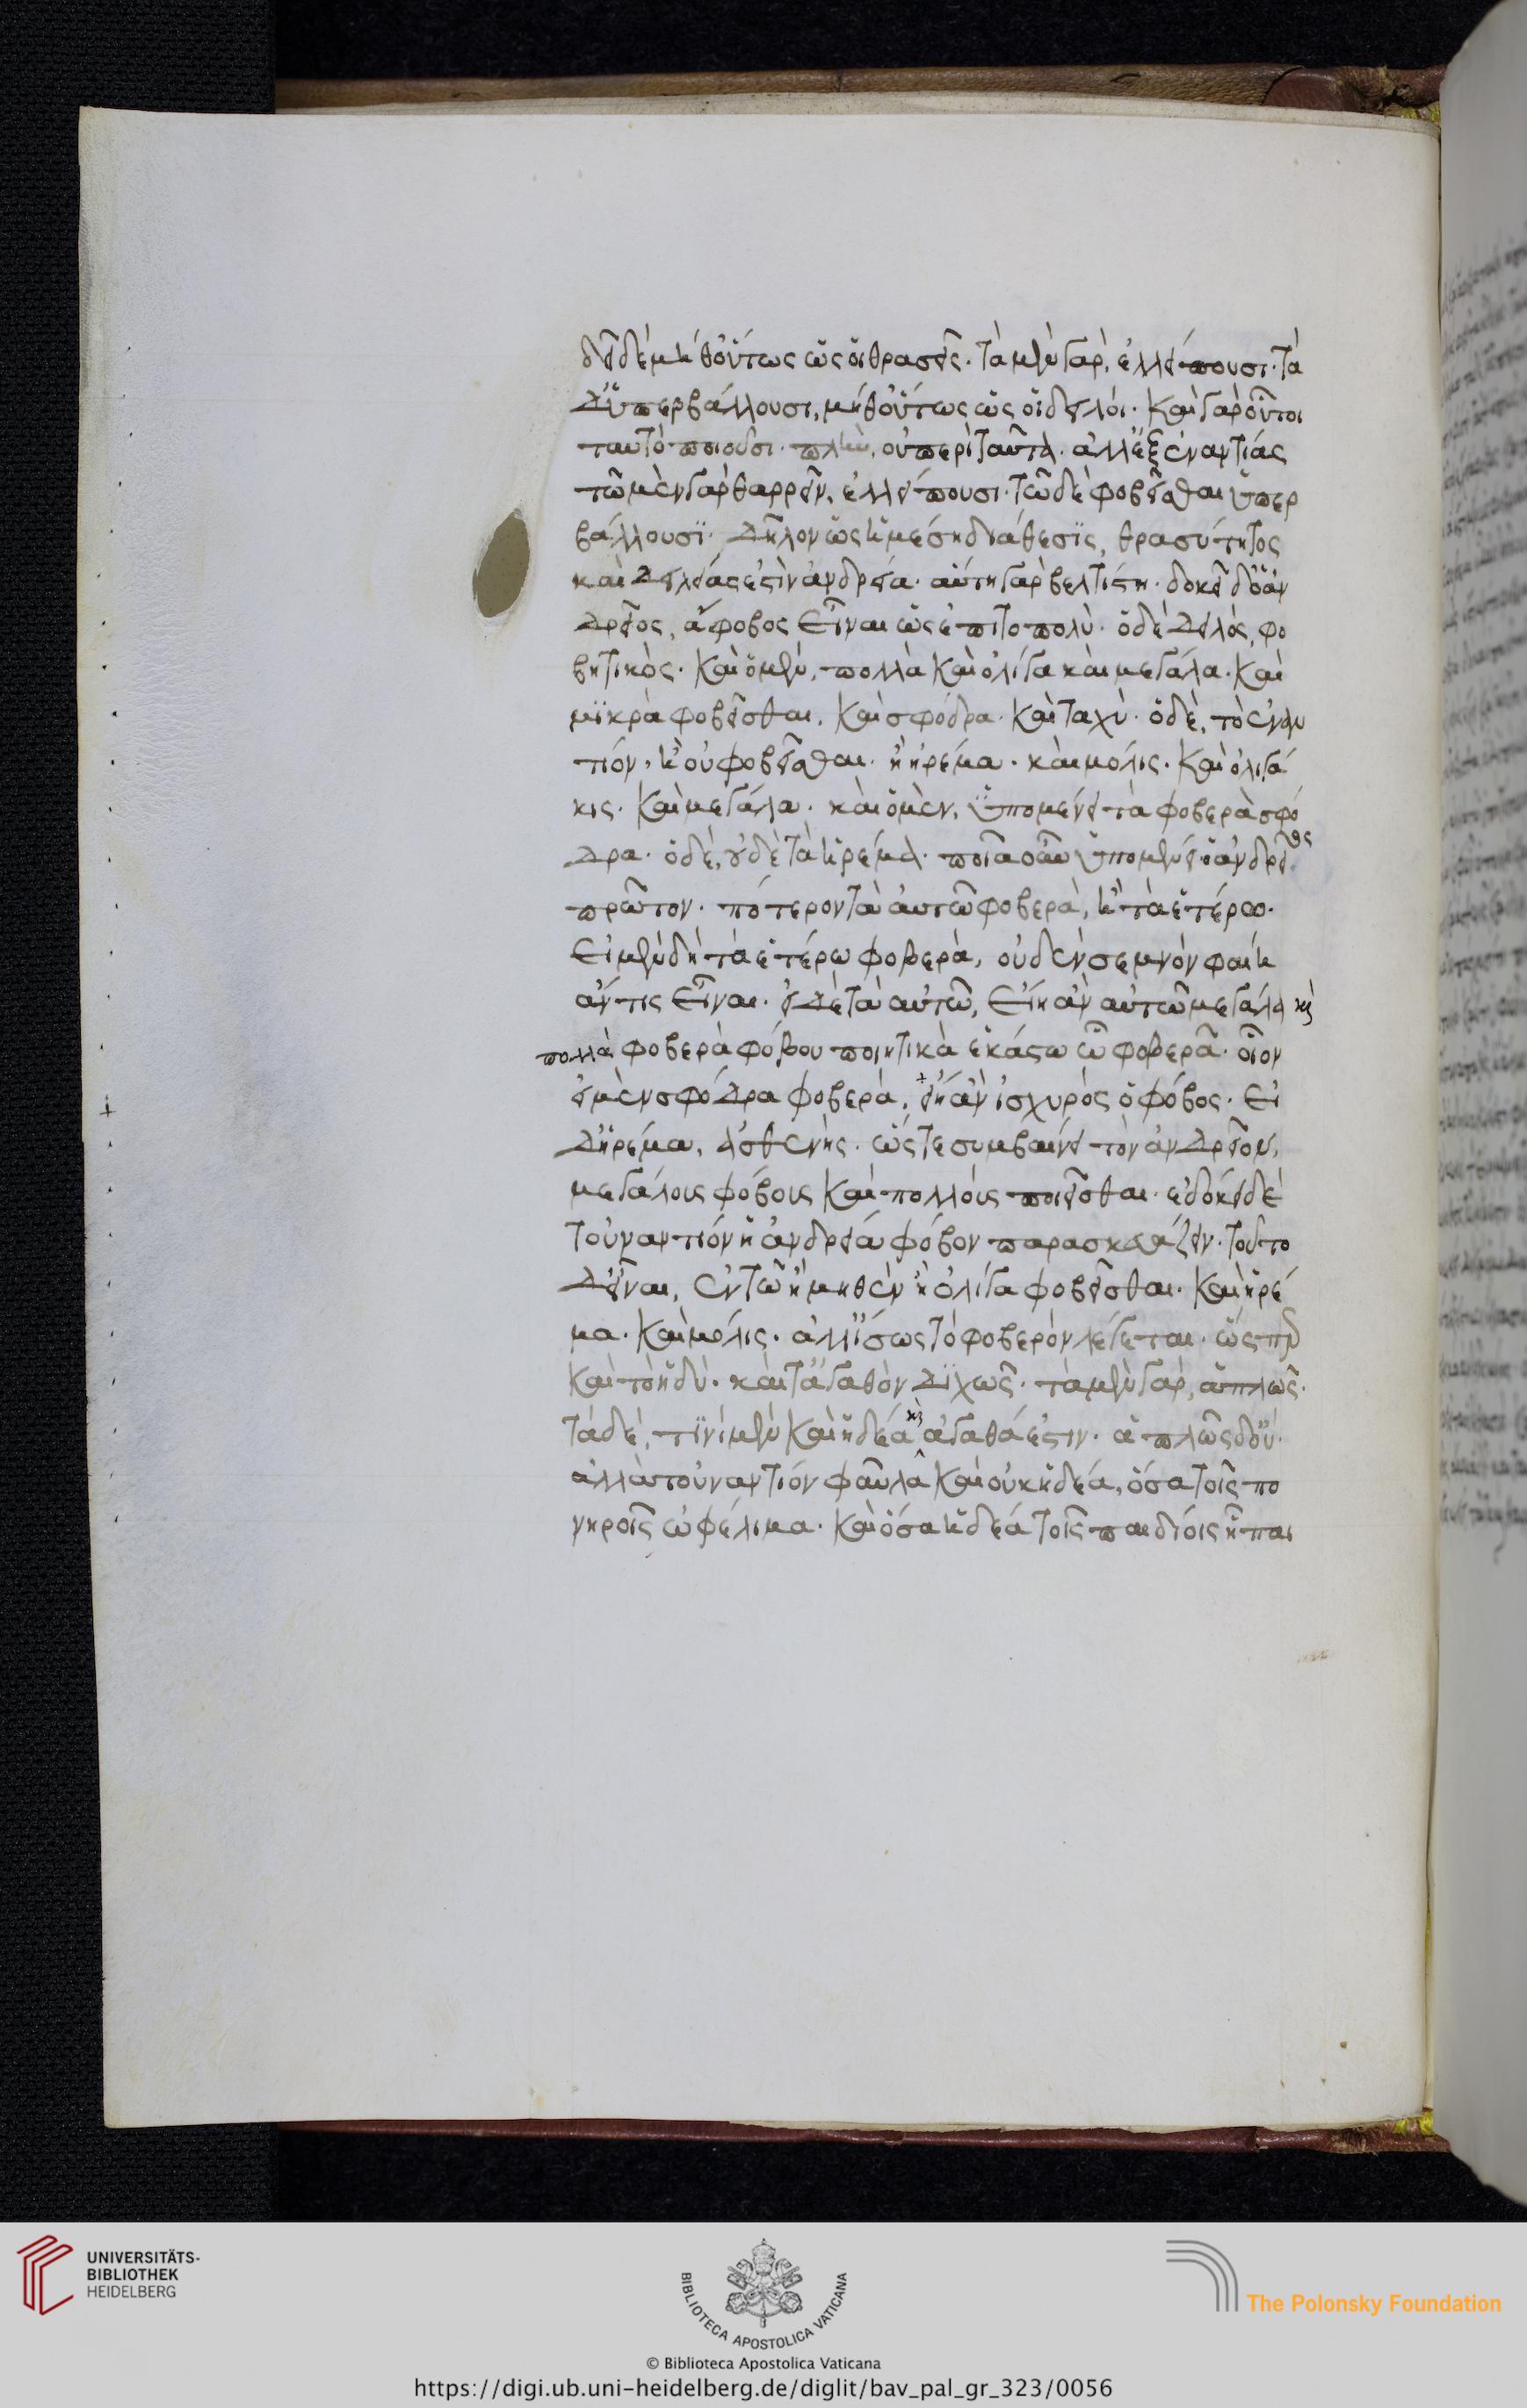 δεῖ δὲ μήθ' οὕτως ὡς οἱ θρασεῖς· τὰ μὲν γὰρ, ἐλλείπουσι· τὰ
δ' ὑπερβάλλουσι, μήθ' οὕτως ὡς οἱ δειλοί· καὶ γὰρ οὗτοι
ταυτὸ ποιοῦσι· πλὴν, οὐ περὶ ταῦτα· ἀλλ' ἐξ ἐναντίας
τῶ μὲν γὰρ θαρρεῖν, ἐλλείπουσι· τῶ δὲ φοβεῖσθαι ὑπερ
βάλλουσϊ· δῆλον ὡς ἡ μέση διάθεσϊς, θρασύτητος
καὶ δειλίας ἐστὶν ἀνδρεία· αὕτη γὰρ βελτίστη· δοκεῖ δ' ὁ ἀν
δρεῖος, ἄφοβος εἶναι ὡς ἐπιτοπολὺ· ὁ δὲ δειλὸς, φο
βητικὸς· καὶ ὁ μὲν, πολλὰ καὶ ὀλίγα καὶ μεγάλα· καὶ
μϊκρὰ φοβεῖσθαι, καὶ σφόδρα· καὶ ταχὺ· ὁ δὲ, τὸ ἐναν
τίον, ἢ οὐ φοβεῖσθαι· ἢ ἠρέμα· καὶ μόλις· καὶ ὀλιγά
κις· καὶ μεγάλα· καὶ ὁ μὲν, ὑπομένει τὰ φοβερὰ σφό
δρα· ὁ δὲ, οὐδὲ τὰ ἠρέμα· ποῖα οὖν ὑπομένει ὁ ἀνδρεῖος
πρῶτον· πότερον τὰ αὐτῶ φοβερὰ, ἢ τὰ ἑτέρω·
εἰ μὲν δὴ τὰ ἑτέρω φοβερὰ, οὐδὲν σεμνὸν φαίη
ἄν τις εἶναι· εἰ δὲ τὰ αὐτῶ, εἴη ἂν αὐτῶ μεγάλα καὶ
πολλὰ φοβερὰ φόβου ποιητικὰ ἑκάστω ὧ φοβερὰ· οἷον
εἰ μὲν σφόδρα φοβερὰ, εἴη ἂν ἰσχυρὸς ὁ φόβος· εἰ
δ' ἠρέμα, ἀσθενής· ὥστε συμβαίνει τὸν ἀνδρεῖον,
μεγάλους φόβους καὶ πολλοὺς ποιεῖσθαι· ἐδόκει δὲ
τοὐναντίον ἡ ἀνδρεία ἄφοβον παρασκευάζειν· τοῦτο
δ' εἶναι, ἐν τῶ ἢ μηθὲν ἢ ὀλίγα φοβεῖσθαι· καὶ ἠρέ
μα· καὶ μόλις· ἀλλ' ἴσως τὸ φοβερὸν λέγεται· ὥσπερ
καὶ τὸ ἡδὺ· καὶ τἀγαθὸν δϊχῶς· τὰ μὲν γὰρ, ἁπλῶς·
τὰ δὲ, τϊνὶ μὲν καὶ ἡδέα καὶ ἀγαθά ἐστιν· ἁπλῶς δ' οὔ·
ἀλλὰ τοὐναντίον φαῦλα καὶ οὐκ ἡδέα, ὅσα τοῖς πο
νηροῖς ὠφέλιμα· καὶ ὅσα ἡδέα τοῖς παιδίοις ᾗ παι
UNIVERSITÄTS-
BIBLIOTHEK
HEIDELBERG
BIBLIOTECA APOSTOLICA VATICANA
The Polonsky Foundation
© Biblioteca Apostolica Vaticana
https://digi.ub.uni-heidelberg.de/diglit/bav_pal_gr_323/0056